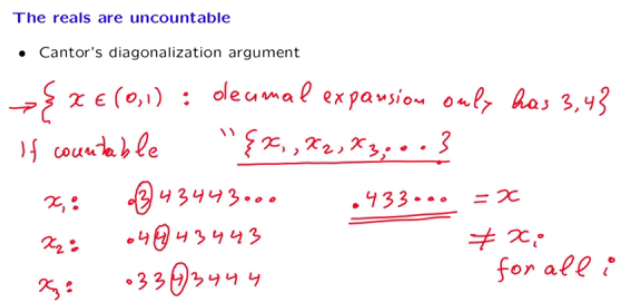 The reals are uncountable
• Cantor's diagonalization argument
→ { x ∈ (0,1) : decimal expansion only has 3,4}
If countable " {x₁, x₂, x₃, ... }
x₁: .343443... .433... = x
x₂: .4443443 ≠ xᵢ
for all i
x₃: .3343444